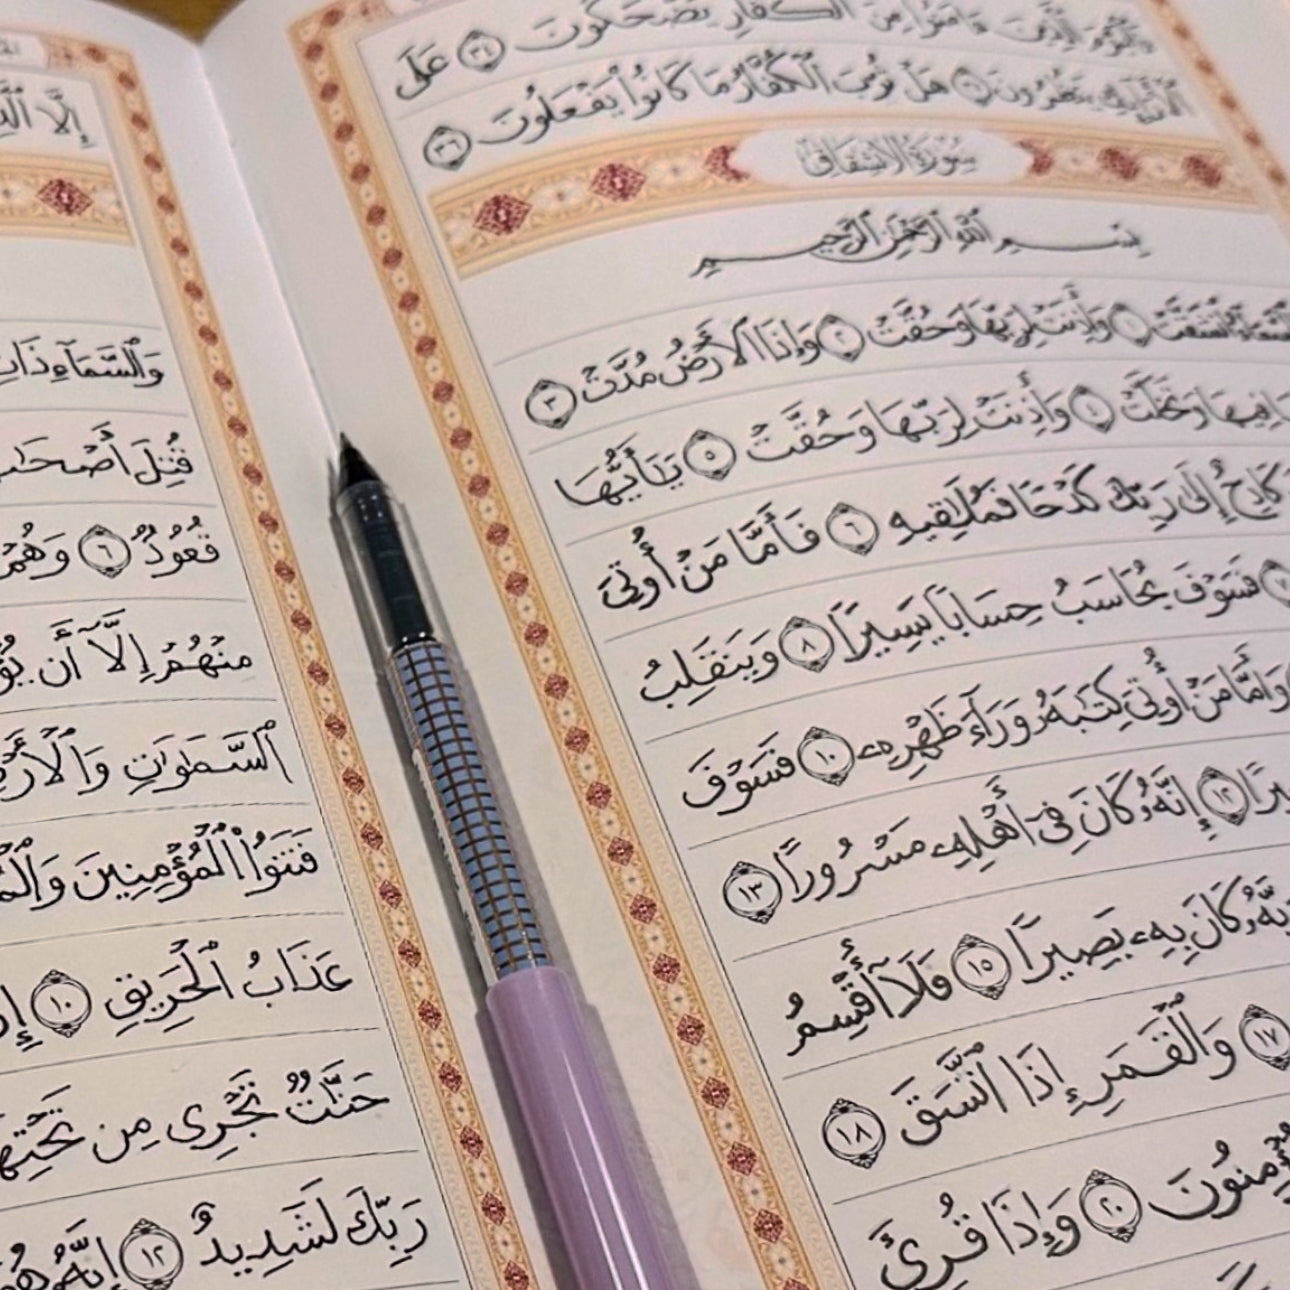 ءَامَنُوا۟ مِنَ ٱلْكُفَّارِ يَضْحَكُونَ ٣٤ عَلَى
ٱلْأَرَآئِكِ يَنظُرُونَ ٣٥ هَلْ ثُوِّبَ ٱلْكُفَّارُ مَا كَانُوا۟ يَفْعَلُونَ ٣٦
سُورَةُ الانشِقَاقِ
بِسْمِ ٱللَّهِ ٱلرَّحْمَٰنِ ٱلرَّحِيمِ
ٱلسَّمَآءُ ٱنشَقَّتْ ١ وَأَذِنَتْ لِرَبِّهَا وَحُقَّتْ ٢ وَإِذَا ٱلْأَرْضُ مُدَّتْ ٣
مَا فِيهَا وَتَخَلَّتْ ٤ وَأَذِنَتْ لِرَبِّهَا وَحُقَّتْ ٥ يَٰٓأَيُّهَا
كَادِحٌ إِلَىٰ رَبِّكَ كَدْحًا فَمُلَٰقِيهِ ٦ فَأَمَّا مَنْ أُوتِىَ
فَسَوْفَ يُحَاسَبُ حِسَابًا يَسِيرًا ٨ وَيَنقَلِبُ
وَأَمَّا مَنْ أُوتِىَ كِتَٰبَهُۥ وَرَآءَ ظَهْرِهِۦ ١٠ فَسَوْفَ
١٢ إِنَّهُۥ كَانَ فِىٓ أَهْلِهِۦ مَسْرُورًا ١٣
كَانَ بِهِۦ بَصِيرًا ١٥ فَلَآ أُقْسِمُ
١٧ وَٱلْقَمَرِ إِذَا ٱتَّسَقَ ١٨
٢٠ وَإِذَا قُرِئَ
إِلَّا
وَٱلسَّمَآءِ ذَاتِ
قُتِلَ أَصْحَٰبُ
قُعُودٌ ٦ وَهُمْ
مِنْهُمْ إِلَّآ أَن
ٱلسَّمَٰوَٰتِ وَٱلْأَرْضِ
فَتَنُوا۟ ٱلْمُؤْمِنِينَ
عَذَابُ ٱلْحَرِيقِ ١٠
جَنَّٰتٌ تَجْرِى مِن تَحْتِهَا
رَبِّكَ لَشَدِيدٌ ١٢ إِنَّهُۥ هُوَ